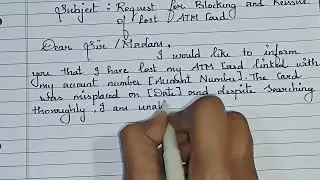 Subject : Request for Blocking and Reissue
of lost ATM Card
Dear Sir / Madam,
I would like to inform
you that I have lost my ATM Card linked with
my account number [Account Number]. The Card
was misplaced on [Date] and despite searching
thoroughly, I am unab